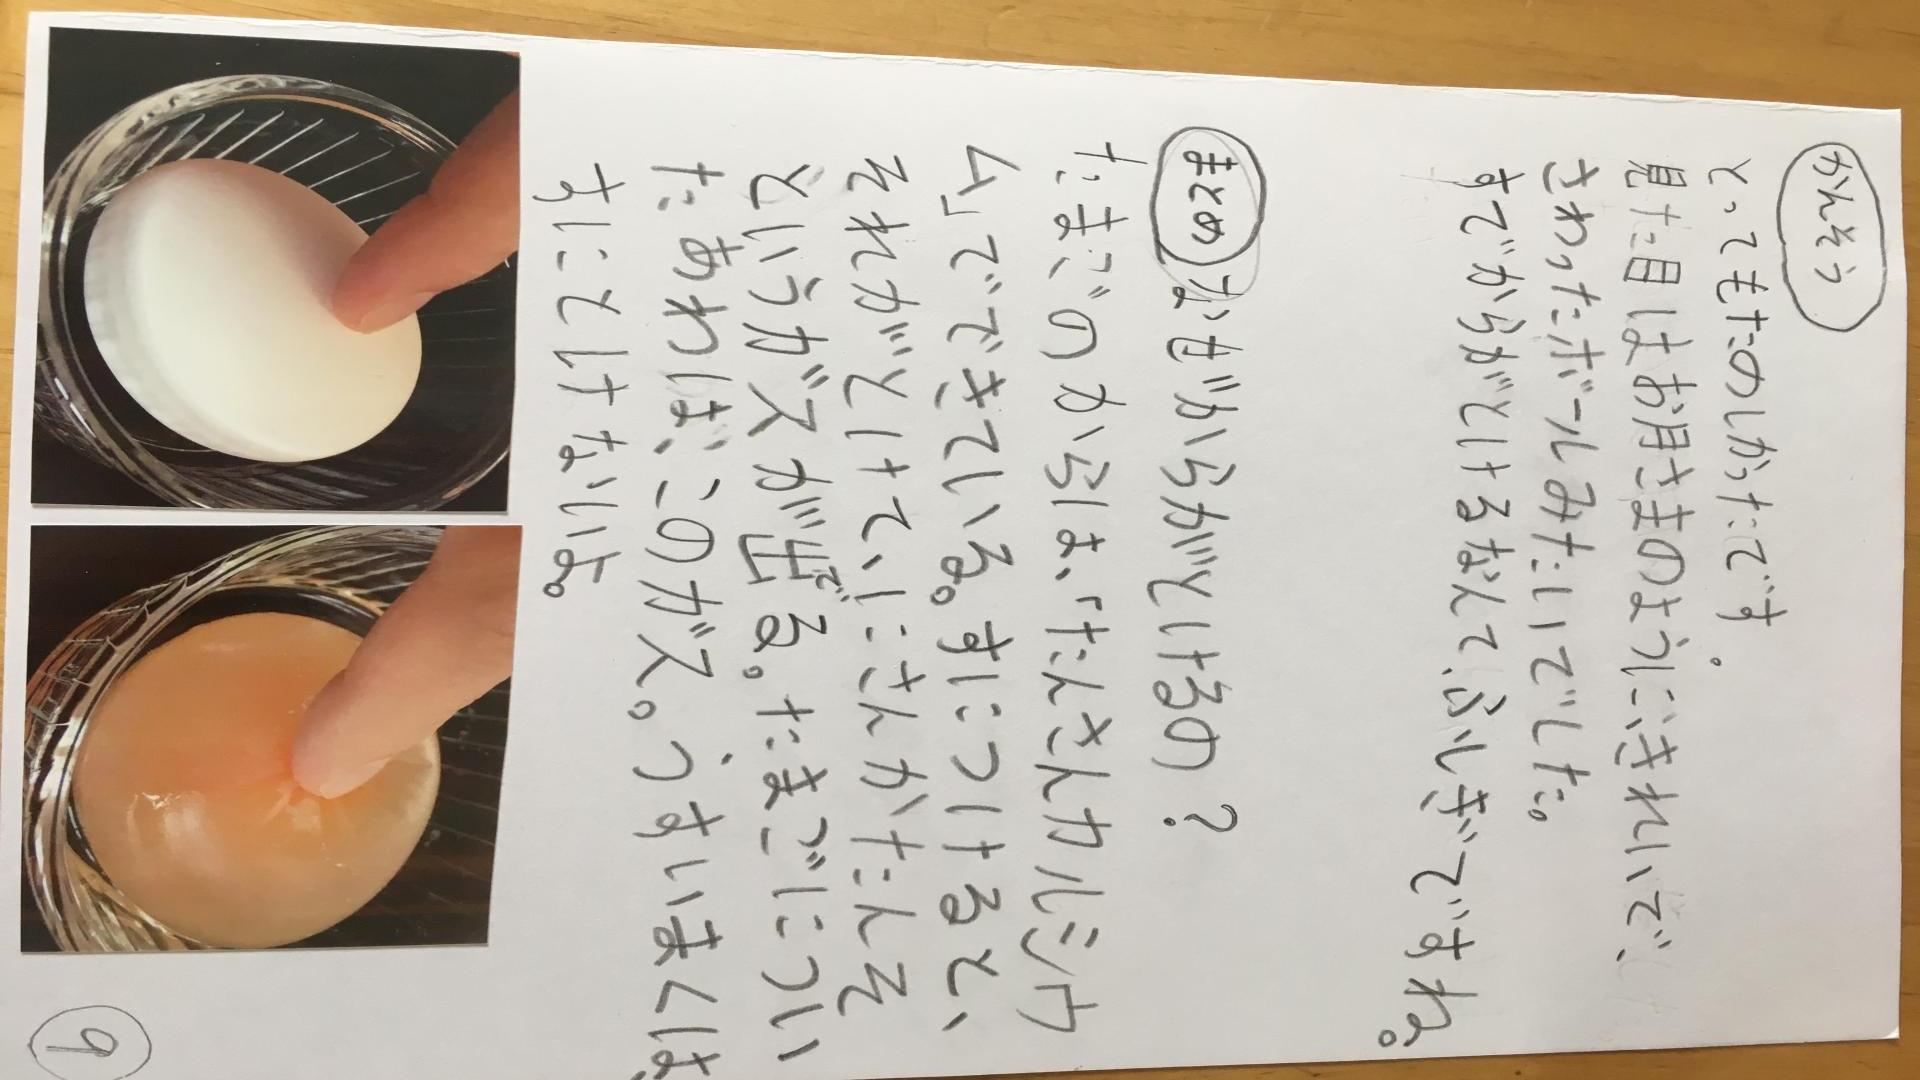 かんそう
とってもたのしかったです。
見た目はお月さまのようにきれいで、
さわったボールみたいでした。
すでからがとけるなんて、ふしぎですね。
まとめ なぜからがとけるの?
たまごのからは、「たんさんカルシウ
ム」でできている。すにつけると、
それがとけて、にさんかたんそ
というガスが出る。たまごについ
たあわは、このガス。うすいまくは、
すにとけないよ。
9